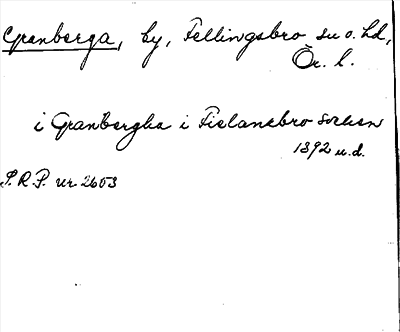 Granberga, by, Fellingsbro sn o. hd,
Ör. l.
i Granbergha i Fielansbro sochen
1392 u.d.
S.R.P. nr 2653